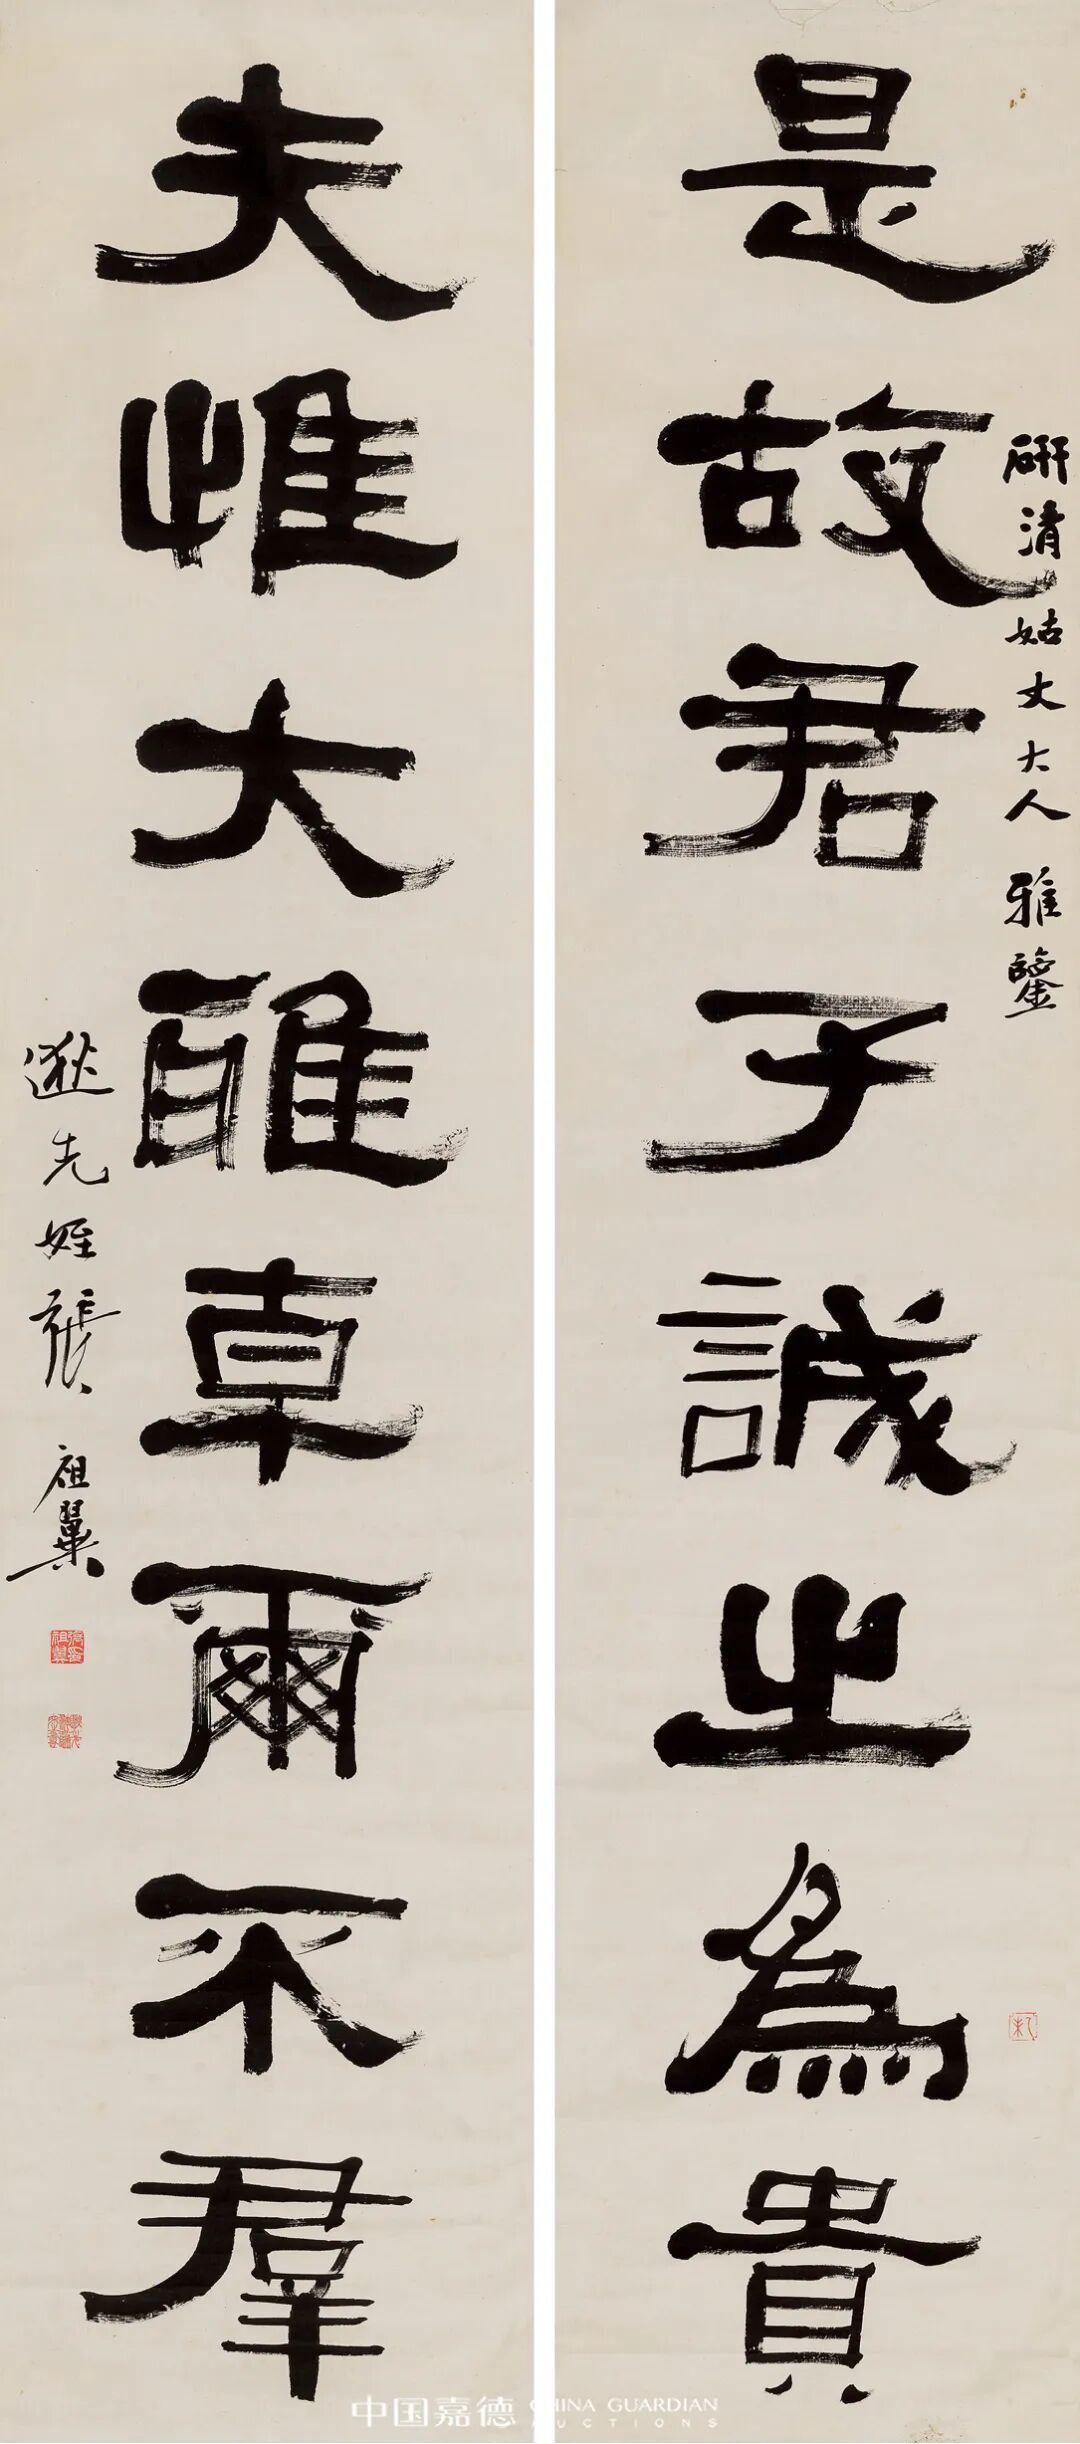 是故君子誠之為貴
研清姑丈大人雅鑒
夫惟大雅卓爾不羣
逖先姪張祖翼
中国嘉德 CHINA GUARDIAN
AUCTIONS